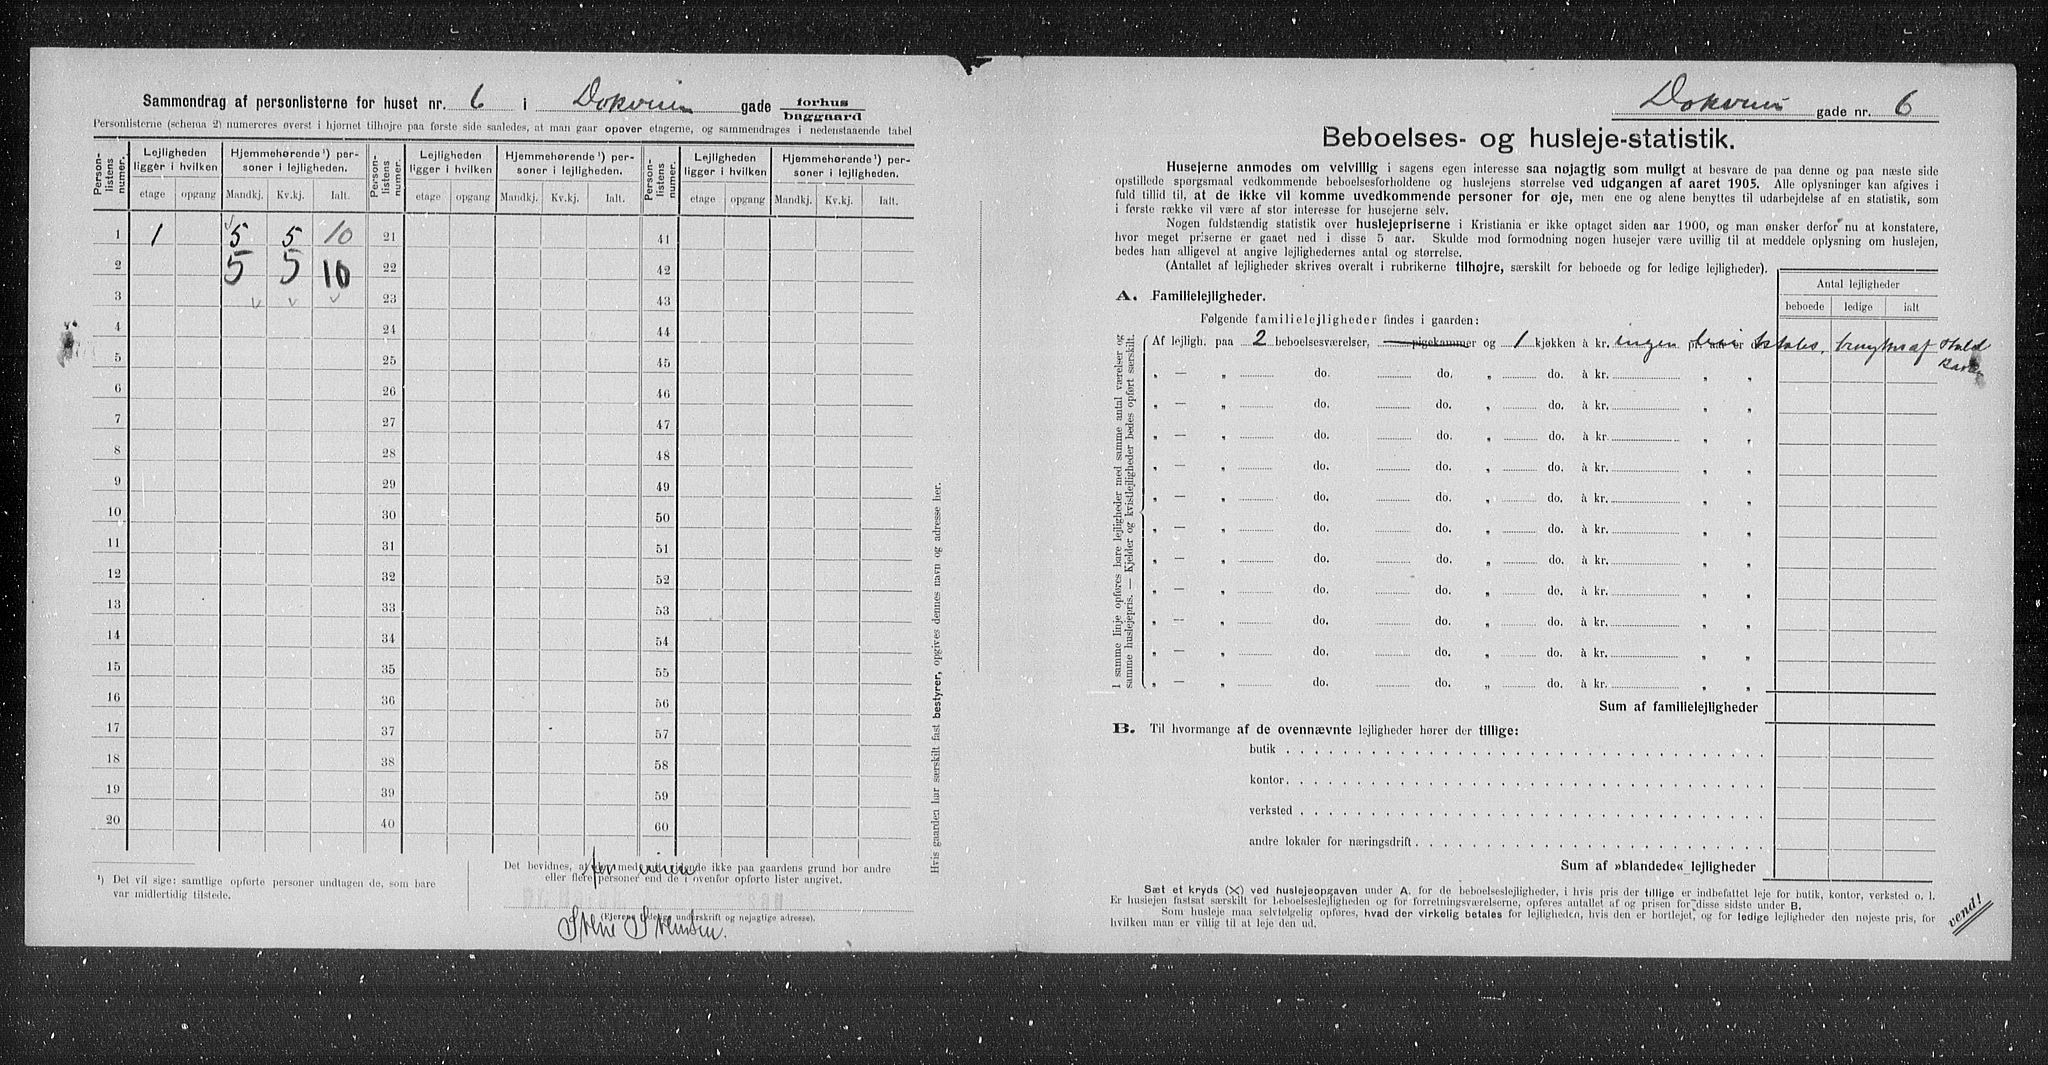 Sammendrag af personlisterne for huset nr. 6 i Dokveien gade forhus
baggaard
Personlisterne (schema 2) numereres øverst i hjørnet tilhøjre paa første side saaledes, at man gaar opover etagerne, og sammendrages i nedenstaaende tabel
Person-listens numer.
Lejligheden ligger i hvilken
Hjemmehørende¹) personer i lejligheden.
Person-listens numer.
Lejligheden ligger i hvilken
Hjemmehørende¹) personer i lejligheden.
Person-listens numer.
Lejligheden ligger i hvilken
Hjemmehørende¹) personer i lejligheden.
etage opgang Mandkj. Kv.kj. Ialt. etage opgang Mandkj. Kv.kj. Ialt. etage opgang Mandkj. Kv.kj. Ialt.
1 1 5 5 10 21 41
2 5 5 10 22 42
3 23 43
4 24 44
5 25 45
6 26 46
7 27 47
8 28 48
9 29 49
10 30 50
11 31 51
12 32 52
13 33 53
14 34 54
15 35 55
16 36 56
17 37 57
18 38 58
19 39 59
20 40 60
¹) Det vil sige: samtlige opførte personer undtagen de, som bare
var midlertidig tilstede.
Det bevidnes, at der med mit vidende ikke paa gaardens grund bor andre
eller flere personer end de i ovenfor opførte lister angivet.
(Ejerens tydelige underskrift og nøjagtige adresse).
Hvis gaarden har særskilt fast bestyrer, opgives dennes navn og adresse her.
Dokveien gade nr. 6
Beboelses- og husleje-statistik.
Husejerne anmodes om velvillig i sagens egen interesse saa nøjagtig som muligt at besvare de paa denne og paa næste side
opstillede spørgsmaal vedkommende beboelsesforholdene og huslejens størrelse ved udgangen af aaret 1905. Alle oplysninger kan afgives i
fuld tillid til, at de ikke vil komme uvedkommende personer for øje, men ene og alene benyttes til udarbejdelse af en statistik, som
i første række vil være af stor interesse for husejerne selv.
Nogen fuldstændig statistik over huslejepriserne i Kristiania er ikke optaget siden aar 1900, og man ønsker derfor nu at konstatere,
hvor meget priserne er gaaet ned i disse 5 aar. Skulde mod formodning nogen husejer være uvillig til at meddele oplysning om huslejen,
bedes han alligevel at angive lejlighedernes antal og størrelse.
(Antallet af lejligheder skrives overalt i rubrikerne tilhøjre, særskilt for beboede og for ledige lejligheder).
Antal lejligheder
beboede ledige ialt
A. Familielejligheder.
Følgende familielejligheder findes i gaarden:
I samme linje opføres bare lejligheder med samme antal værelser og
samme huslejepris. — Kjelder og kvistlejligheder bedes opført særskilt.
Af lejligh. paa 2 beboelsesværelser, pigekammer og 1 kjøkken à kr. ingen
„ — „ do. do. „ do. à kr. „ „
„ — „ do. do. „ do. à kr. „ „
„ — „ do. do. „ do. à kr. „ „
„ — „ do. do. „ do. à kr. „ „
„ — „ do. do. „ do. à kr. „ „
„ — „ do. do. „ do. à kr. „ „
„ — „ do. do. „ do. à kr. „ „
„ — „ do. do. „ do. à kr. „ „
„ — „ do. do. „ do. à kr. „ „
„ — „ do. do. „ do. à kr. „ „
„ — „ do. do. „ do. à kr. „ „
Sum af familielejligheder
B. Til hvormange af de ovennævnte lejligheder hører der tillige:
butik
kontor
verksted
andre lokaler for næringsdrift
Sum af »blandede« lejligheder
Sæt et kryds (X) ved huslejeopgaven under A. for de beboelseslejligheder, i hvis pris der tillige er indbefattet leje for butik, kontor, verksted o. l.
Er huslejen fastsat særskilt for beboelseslejligheden og for forretningsværelserne, opføres antallet af og prisen for disse sidste under B.
Som husleje maa selvfølgelig opføres, hvad der virkelig betales for lejligheden, hvis den er bortlejet, og for ledige lejligheder den nøjeste pris, for
hvilken man er villig til at leje den ud.
vend!